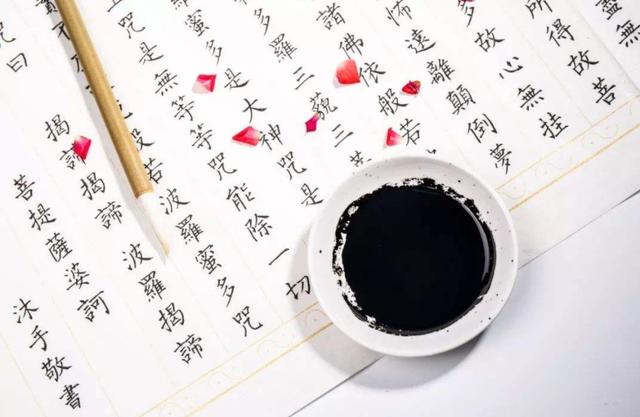 所得故菩
多故心無掛
怖遠離顛倒夢
諸佛依般若
多羅三藐三菩
蜜多是大神咒是
咒是無等等咒能除一切
故說般若波羅蜜多咒
咒曰揭諦揭諦波羅揭諦
菩提薩婆訶
沐手敬書